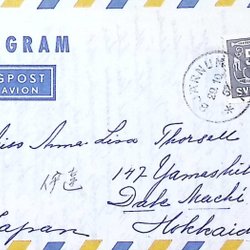 GRAM
GPOST
AVION
SV
iss Anna-Lisa Thorsell
伊達
147 Yamashit
Date Machi
Hokkaid
Japan